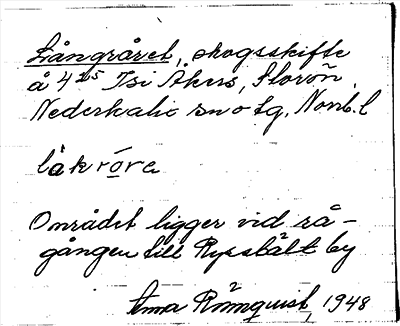 Långråret, skogsskifte
å 4²⁵ Isi Åkers, Storön,
Nederkalix sn o tg, Nonb. l
låkróra
Området ligger vid rå-
gången till Ryssbält by
Anna Römquist, 1948